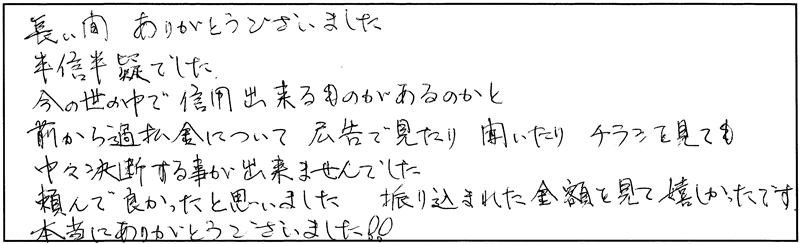 長い間 ありがとうございました
半信半疑でした
今の世の中で信用出来るものがあるのかと
前から過払金について 広告で見たり 聞いたり チラシを見ても
中々決断する事が出来ませんでした
頼んで良かったと思いました 振り込まれた金額を見て嬉しかったです
本当にありがとうございました!!